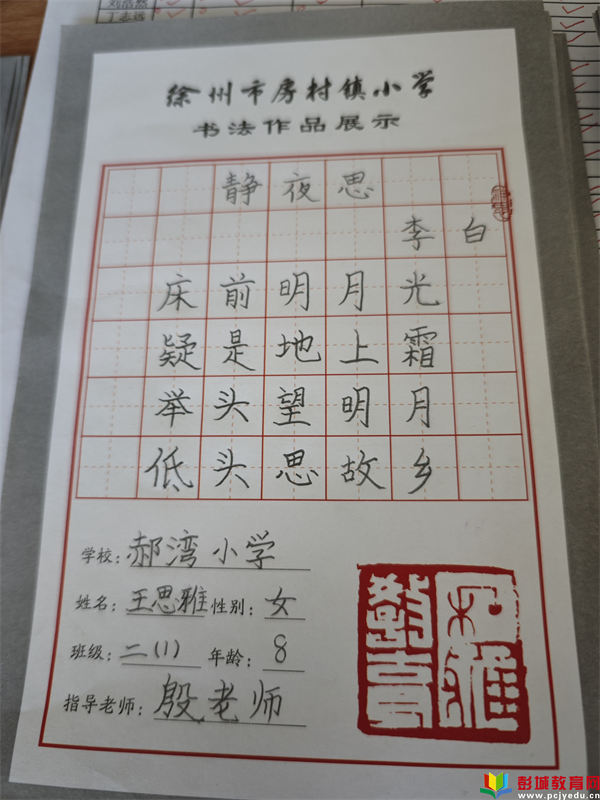 丁志远
徐州市房村镇小学
书法作品展示
静夜思
李白
床前明月光
疑是地上霜
举头望明月
低头思故乡
学校：郝湾小学
姓名：王思雅 性别：女
班级：二(1) 年龄：8
指导老师：殷老师
彭城教育网
www.pcjyedu.cn